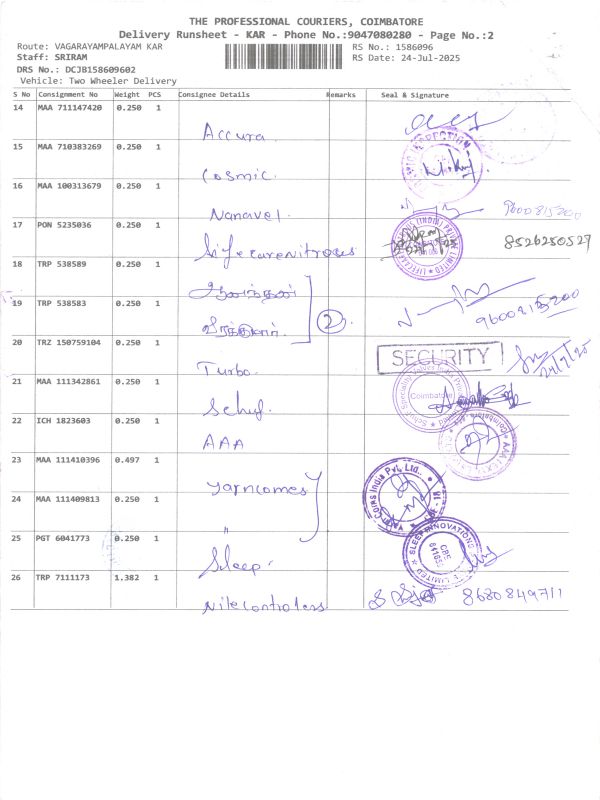 THE PROFESSIONAL COURIERS, COIMBATORE
Delivery Runsheet - KAR - Phone No.:9047080280 - Page No.:2
Route: VAGARAYAMPALAYAM KAR RS No.: 1586096
Staff: SRIRAM RS Date: 24-Jul-2025
DRS No.: DCJB158609602
Vehicle: Two Wheeler Delivery
S No Consignment No Weight PCS Consignee Details Remarks Seal & Signature
14 MAA 711147420 0.250 1
Accura
15 MAA 710383269 0.250 1
Cosmic.
16 MAA 100313679 0.250 1
Nanavel. 9600815200
17 PON 5235036 0.250 1
8526250527
18 TRP 538589 0.250 1
19 TRP 538583 0.250 1
2 9600815200
20 TRZ 150759104 0.250 1
Turbo. SECURITY 24/7/25
21 MAA 111342861 0.250 1
Schuf. Coimbatore
22 ICH 1823603 0.250 1
AAA
23 MAA 111410396 0.497 1
Yarncomes
24 MAA 111409813 0.250 1
"
25 PGT 6041773 0.250 1
Sleep. SLEEP INNOVATIONS
26 TRP 7111173 1.382 1
Nitecontrolers 8680849711